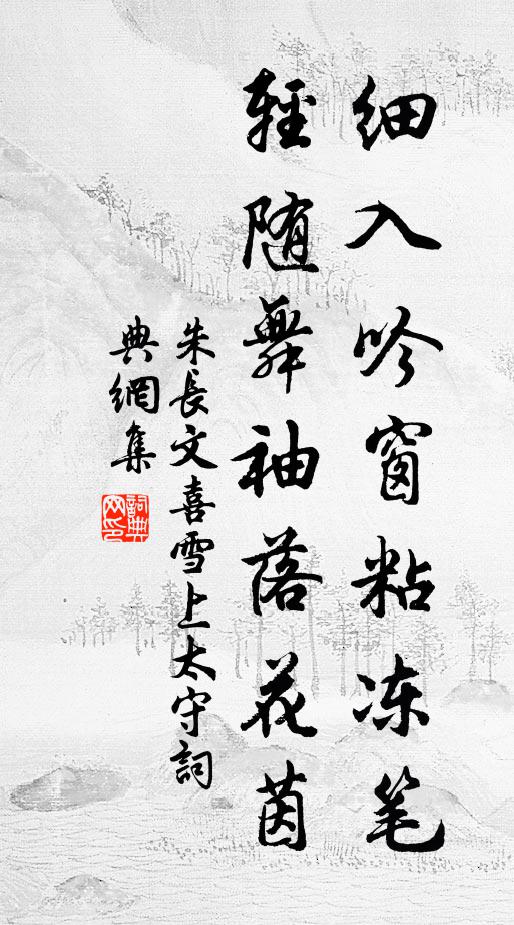 细入吟窗粘冻笔
轻随舞袖落花茵
朱長文喜雪上太守詞
典網集
詞典网印